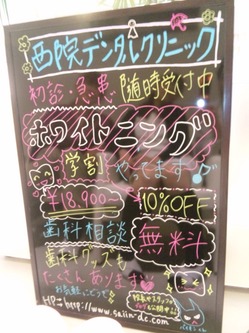 西院デンタルクリニック
初診・急患 随時受付中
ホワイトニング
学割 やってます♪
¥18,900 10%OFF
歯科相談 無料
歯科グッズも
たくさんあります
お気軽にどうぞ
HP→ http://www.saiin-dc.com